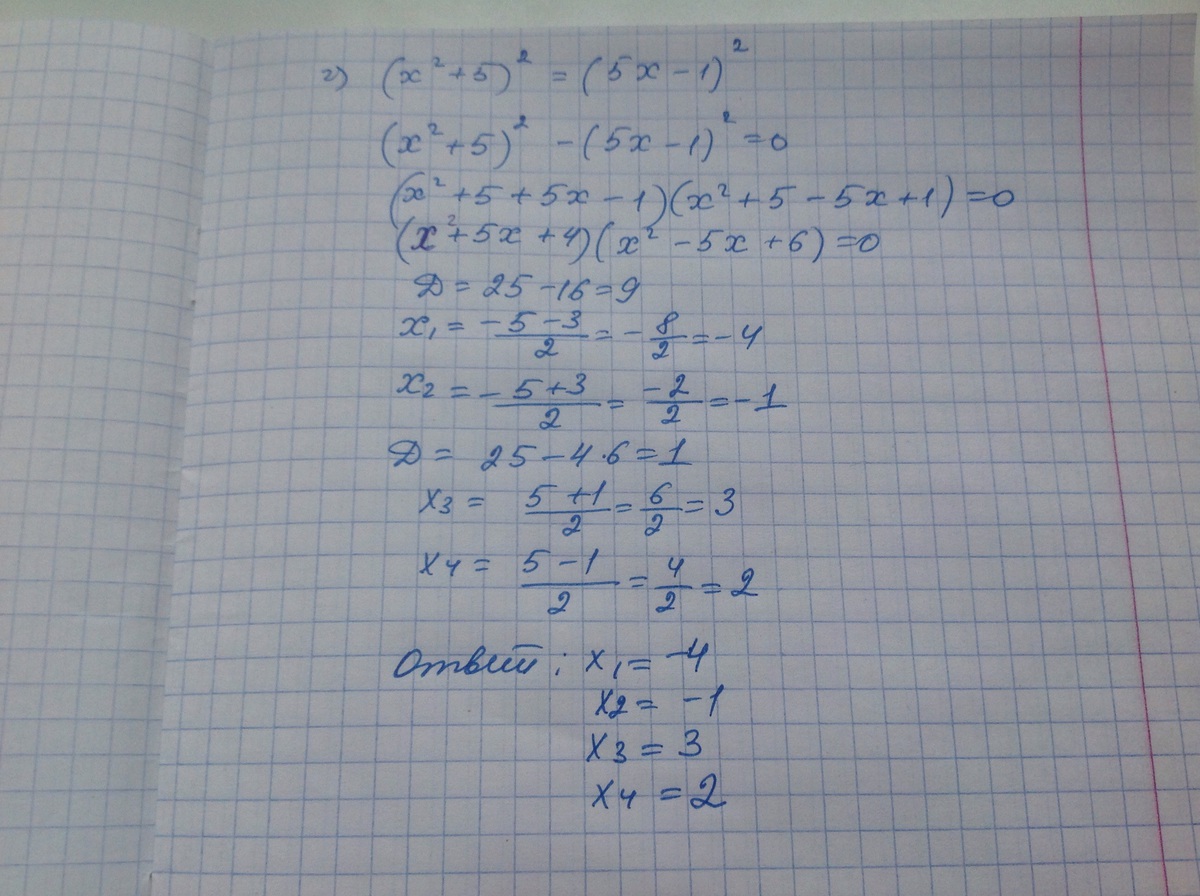 г) (x²+5)² = (5x-1)²
(x²+5)² - (5x-1)² = 0
(x²+5+5x-1)(x²+5-5x+1)=0
(x²+5x+4)(x²-5x+6)=0
Д = 25-16=9
x₁ = (-5-3)/2 = -8/2 = -4
x₂ = (-5+3)/2 = -2/2 = -1
Д = 25-4·6=1
x₃ = (5+1)/2 = 6/2 = 3
x₄ = (5-1)/2 = 4/2 = 2
Ответ: x₁ = -4
x₂ = -1
x₃ = 3
x₄ = 2